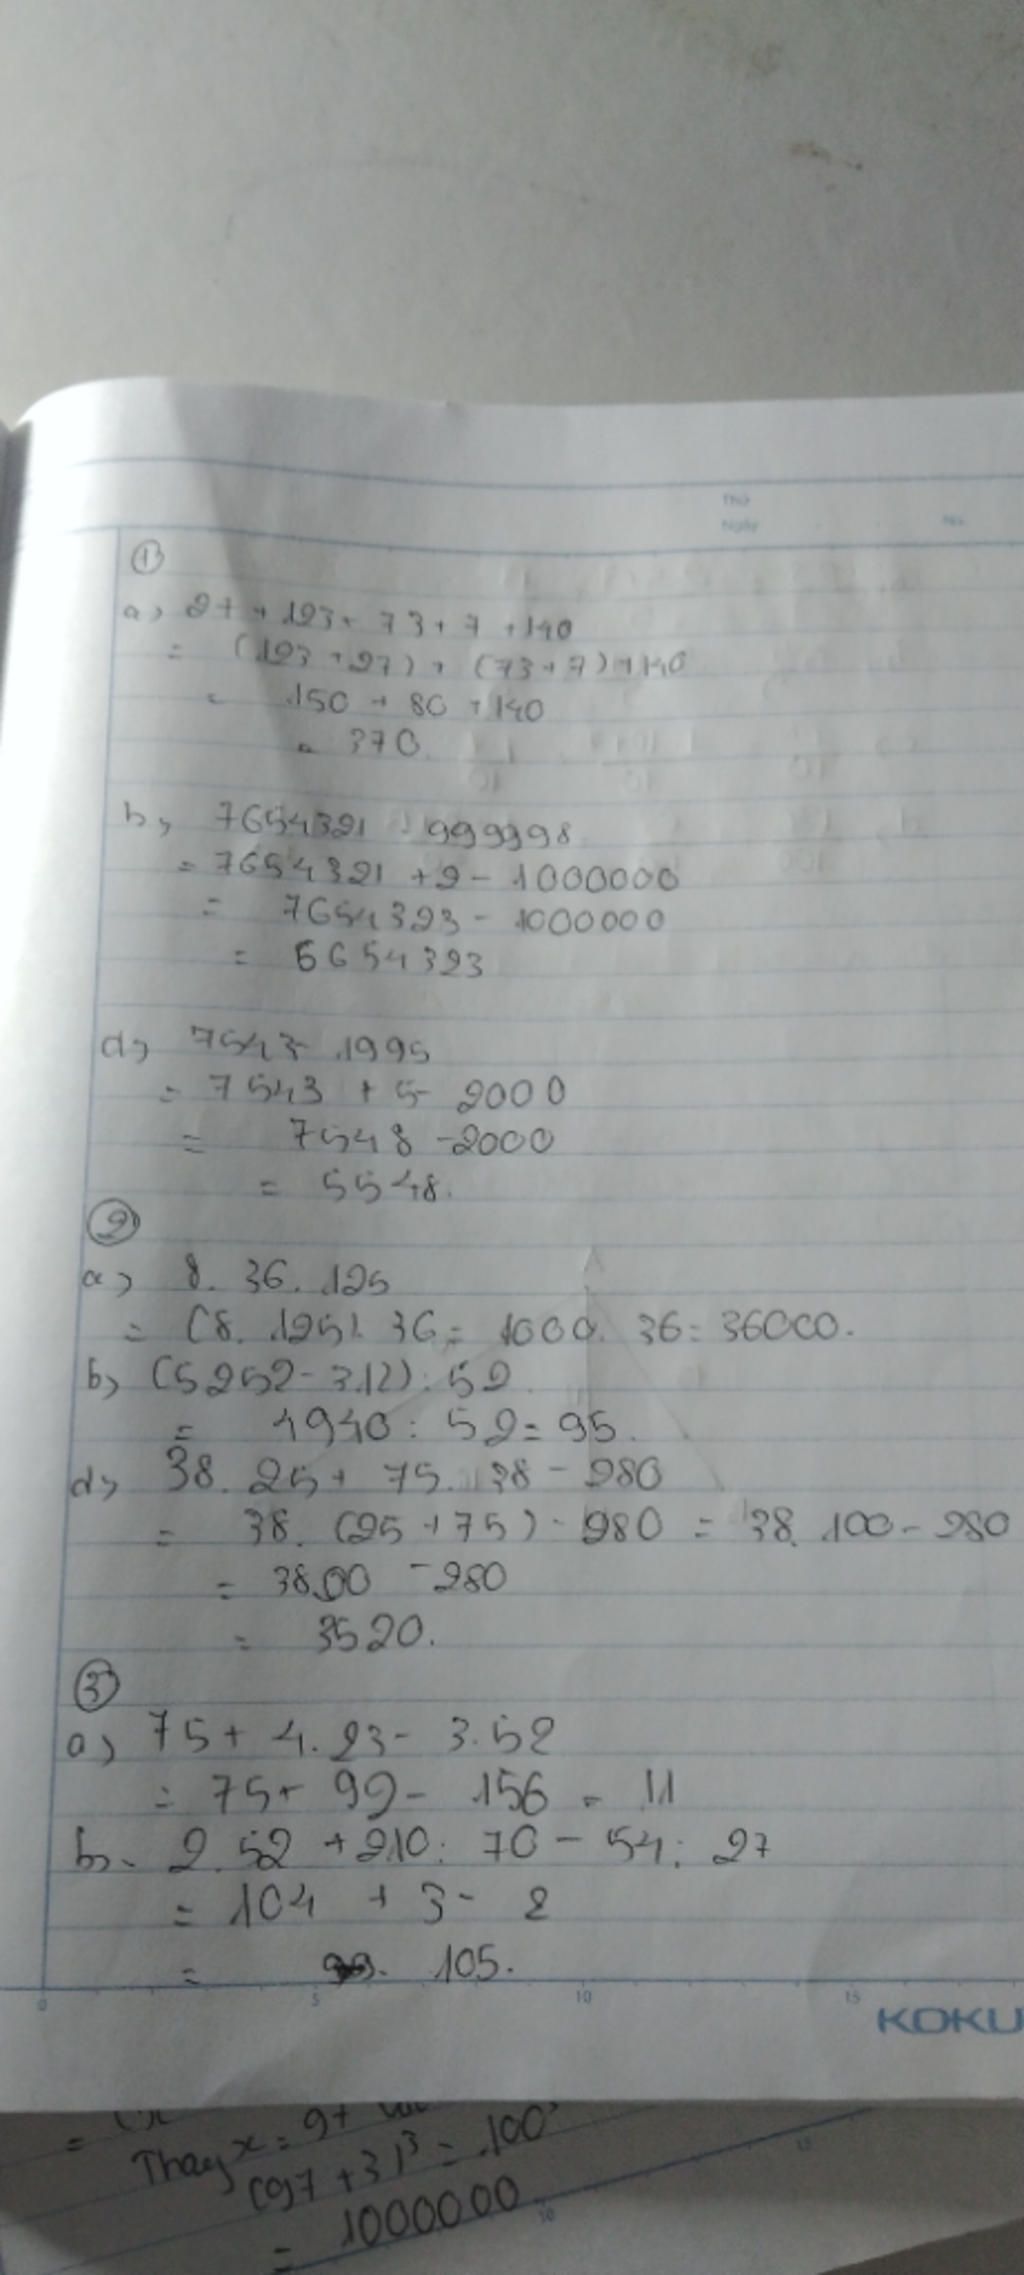 Thứ
Ngày No.
①
a, 27 + 123 + 73 + 7 + 140
= (123 + 27) + (73 + 7) + 140
= 150 + 80 + 140
= 370.
b, 7654321 - 999998
= 7654321 + 2 - 1000000
= 7654323 - 1000000
= 6654323
d, 7543 - 1995
= 7543 + 5 - 2000
= 7548 - 2000
= 5548.
②
a, 8. 36. 125
= (8. 125). 36 = 1000. 36 = 36000.
b, (5252 - 312) : 52
= 4940 : 52 = 95.
d, 38. 25 + 75. 38 - 280
= 38. (25 + 75) - 280 = 38. 100 - 280
= 3800 - 280
= 3520.
③
a, 75 + 4. 23 - 3. 52
= 75 + 92 - 156 = 11
b. 2. 52 + 210 : 70 - 54 : 27
= 104 + 3 - 2
= 105.
0 5 10 15
KOKU
Thay x = 97
(97 + 3)³ = 100³
= 1000000
10 15